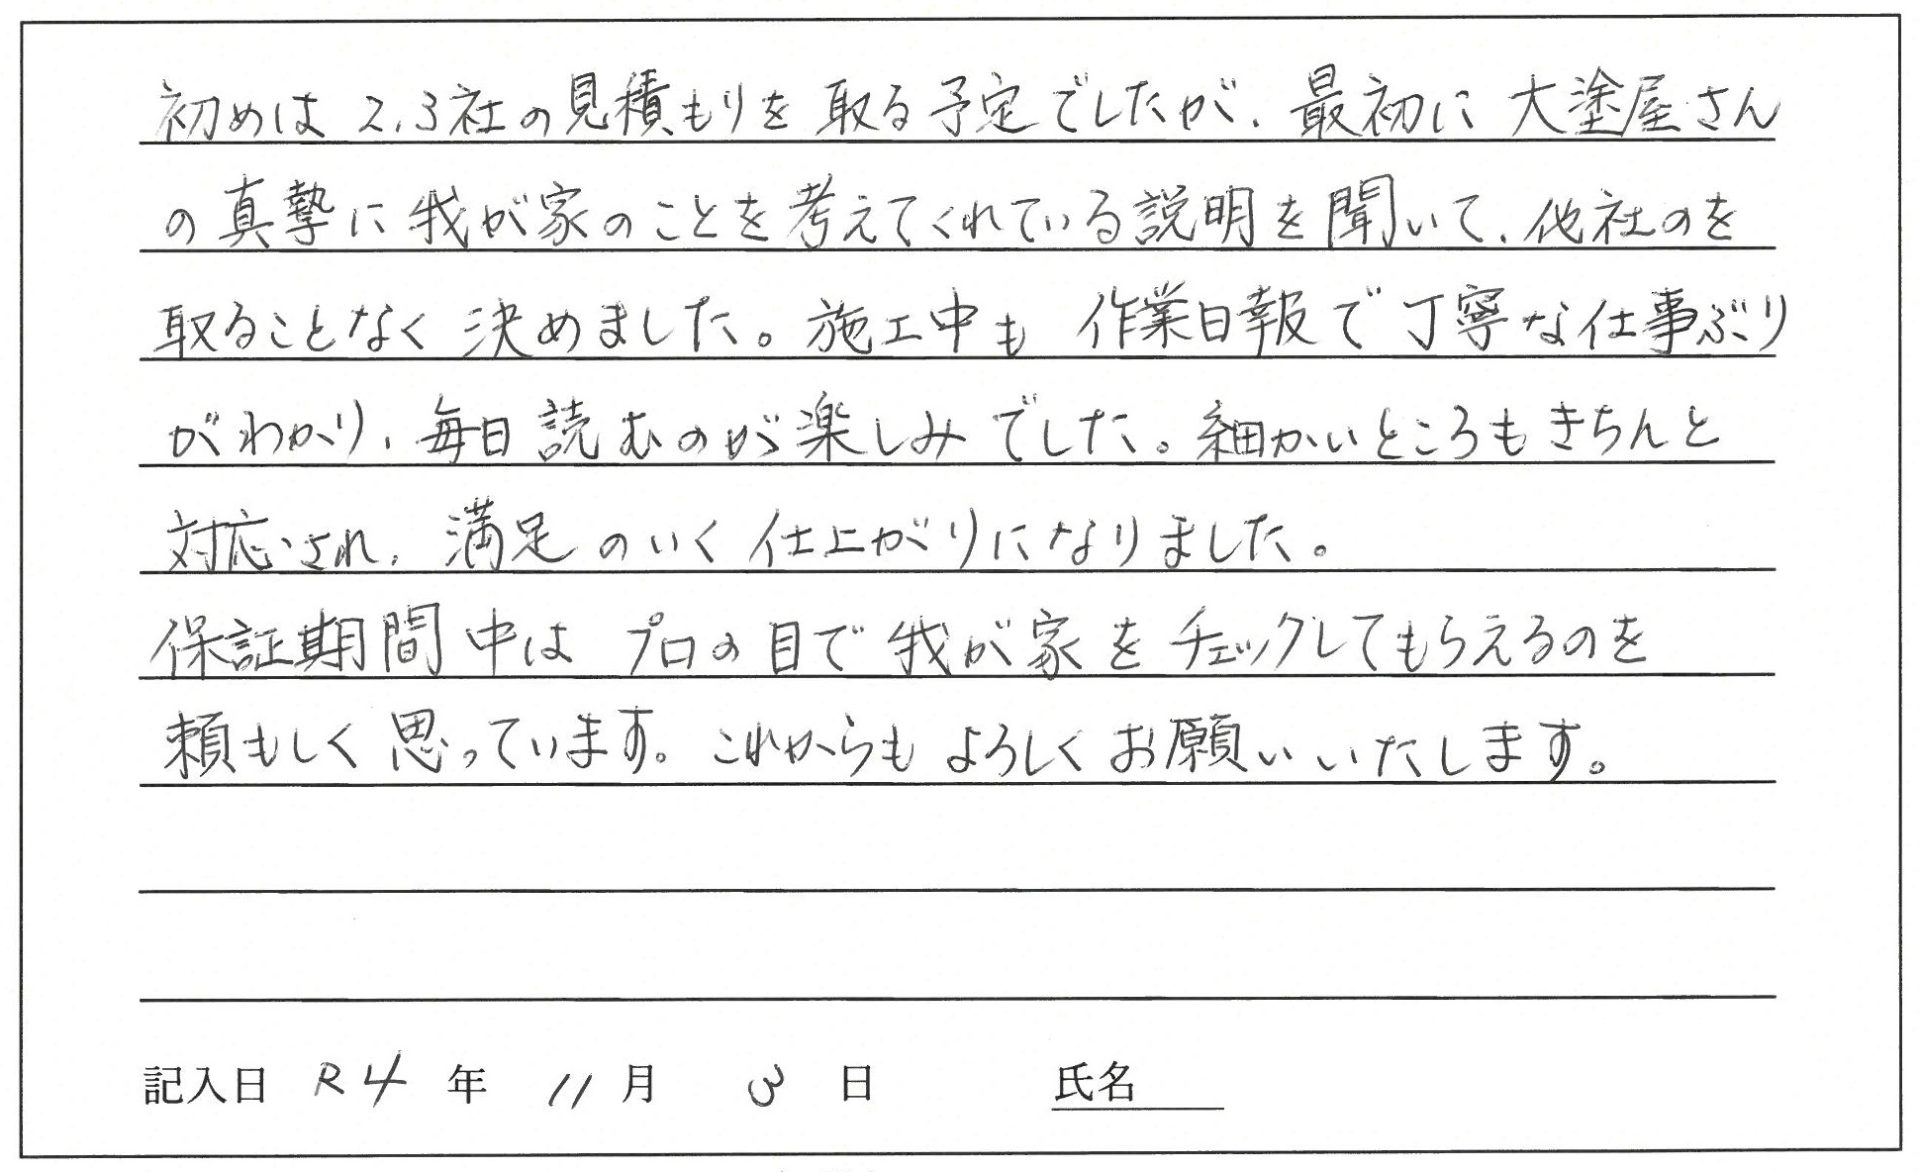 初めは 2,3社の見積もりを 取る予定でしたが、最初に 大塗屋さん
の真摯に我が家のことを考えてくれている説明を聞いて、他社のを
取ることなく 決めました。施工中も 作業日報で丁寧な仕事ぶり
がわかり、毎日読むのが楽しみでした。細かいところもきちんと
対応され、満足のいく仕上がりになりました。
保証期間中は プロの目で我が家をチェックしてもらえるのを
頼もしく思っています。これからもよろしくお願いいたします。
記入日 R4 年 11 月 3 日 氏名